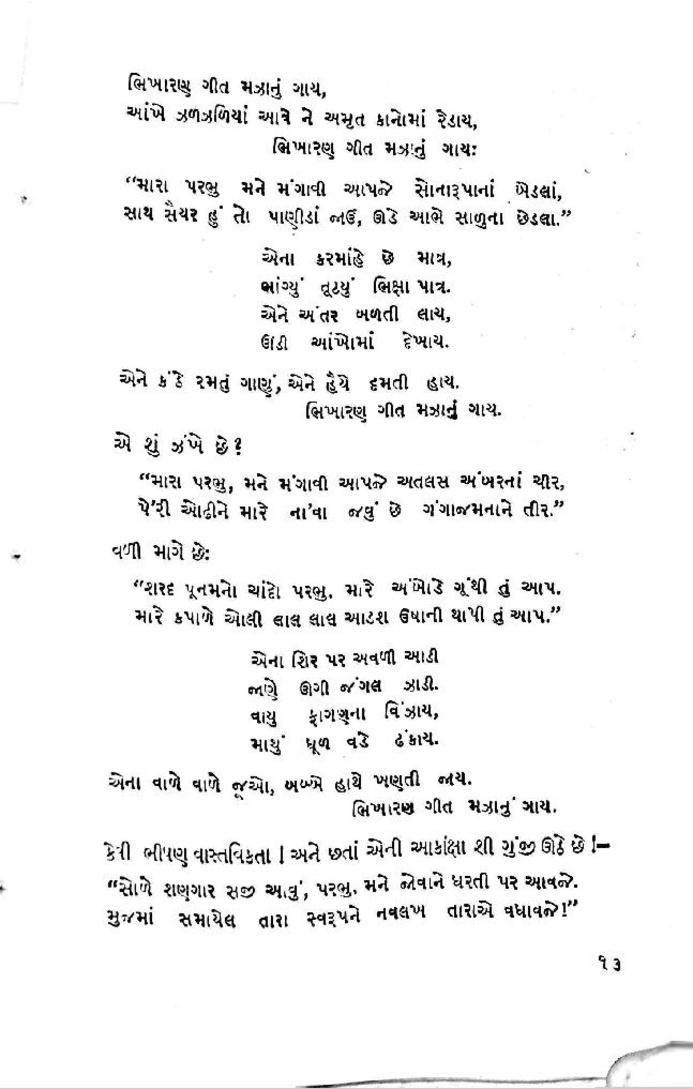 ભિખારણ ગીત મઝાનું ગાય,
આંખે ઝળઝળિયાં આવે ને અમૃત કાનોમાં રેડાય,
ભિખારણ ગીત મઝાનું ગાય:
“મારા પરભુ મને મંગાવી આપજે સોનારૂપાનાં બેડલાં,
સાથ સૈયર હું તો પાણીડાં જાઉં, ઊડે આભે સાળુના છેડલા.”
એના કરમાંહે છે માત્ર,
ભાંગ્યું તૂટયું ભિક્ષા પાત્ર.
એને અંતર બળતી લાય,
ઊંડી આંખોમાં દેખાય.
એને કંઠે રમતું ગાણું, એને હૈયે દમતી હાય.
ભિખારણ ગીત મઝાનું ગાય.
એ શું ઝંખે છે?
“મારા પરભુ, મને મંગાવી આપજે અતલસ અંબરનાં ચીર,
પે'રી ઓઢીને મારે ના'વા જવું છે ગંગાજમનાને તીર.”
વળી માગે છે:
“શરદ પૂનમનો ચાંદો પરભુ, મારે અંબોડે ગૂંથી તું આપ.
મારે કપાળે ઓલી લાલ લાલ આડશ ઉષાની થાપી તું આપ.”
એના શિર પર અવળી આડી
જાણે ઊગી જંગલ ઝાડી.
વાયુ ફાગણના વિંઝાય,
માથું ધૂળ વડે ઢંકાય.
એના વાળે વાળે જૂઓ, બબ્બે હાથે ખણતી જાય.
ભિખારણ ગીત મઝાનું ગાય.
કેવી ભીષણ વાસ્તવિકતા ! અને છતાં એની આકાંક્ષા શી ગુંજી ઊઠે છે !–
“સોળે શણગાર સજી આવું, પરભુ, મને જોવાને ધરતી પર આવજે.
મુજમાં સમાયેલ તારા સ્વરૂપને નવલખ તારાએ વધાવજે!”
૧૩